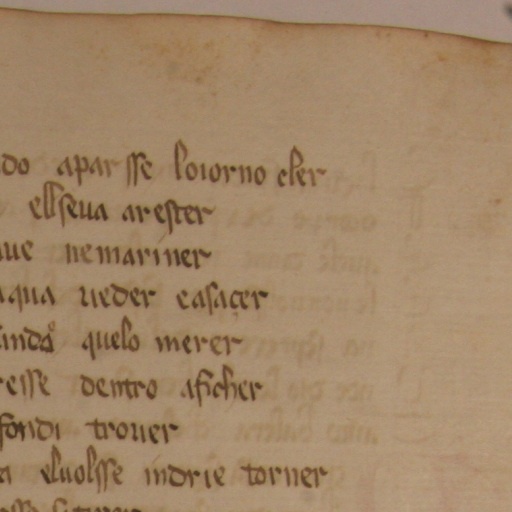 do aparsse loiorno cler
ellseua arester
ue nemariner
aqua ueder casaçer
quelo merer
esse dentro aficher
fondi trouer
eluolsse indrie torner